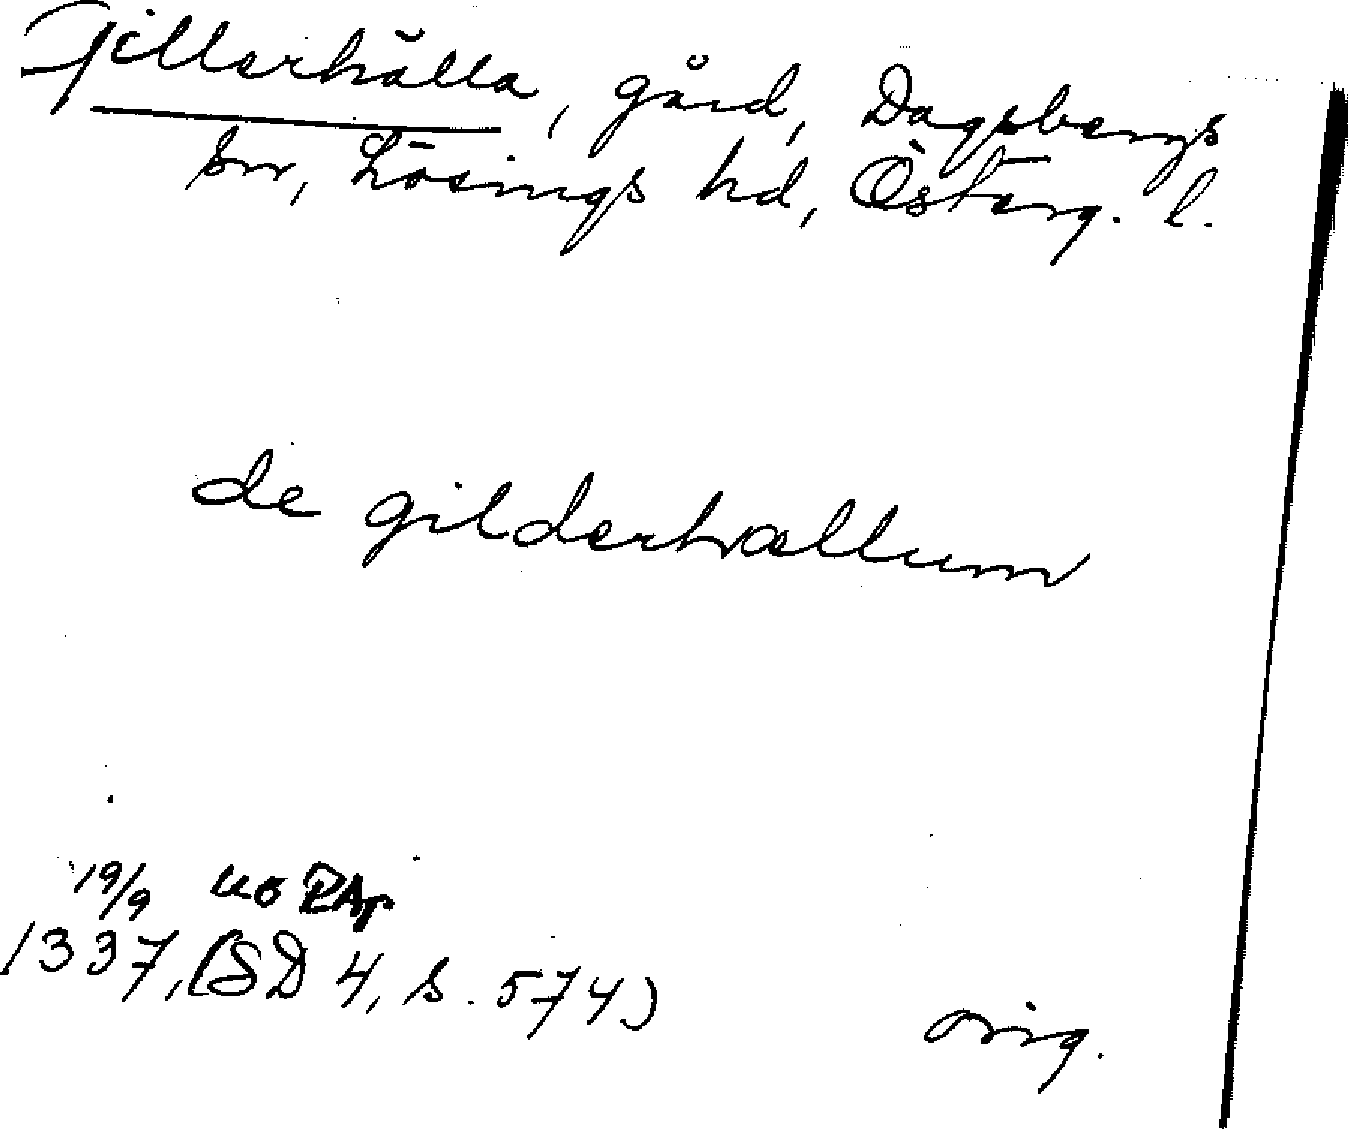 Gillerhälla, gård, Dagsbergs
sn, Lösings hd, Österg. l.
de gilderhællum
19/9 RAp
1337, (SD 4, s. 574)
orig.